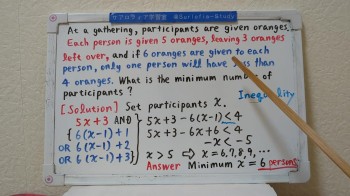 サクロウィブ学習室 @Surlofia-Study
At a gathering, participants are given oranges.
Each person is given 5 oranges, leaving 3 oranges
left over, and if 6 oranges are given to each
person, only one person will have less than
4 oranges. What is the minimum number of
participants?
Inequality
[Solution] Set participants x.
5x+3 AND
{ 6(x-1)+1
OR 6(x-1)+2
OR 6(x-1)+3}
5x+3-6(x-1)<4
5x+3-6x+6<4
-x<-5
x>5 ⇨ x=6,7,8,9,...
Answer Minimum x=6 persons